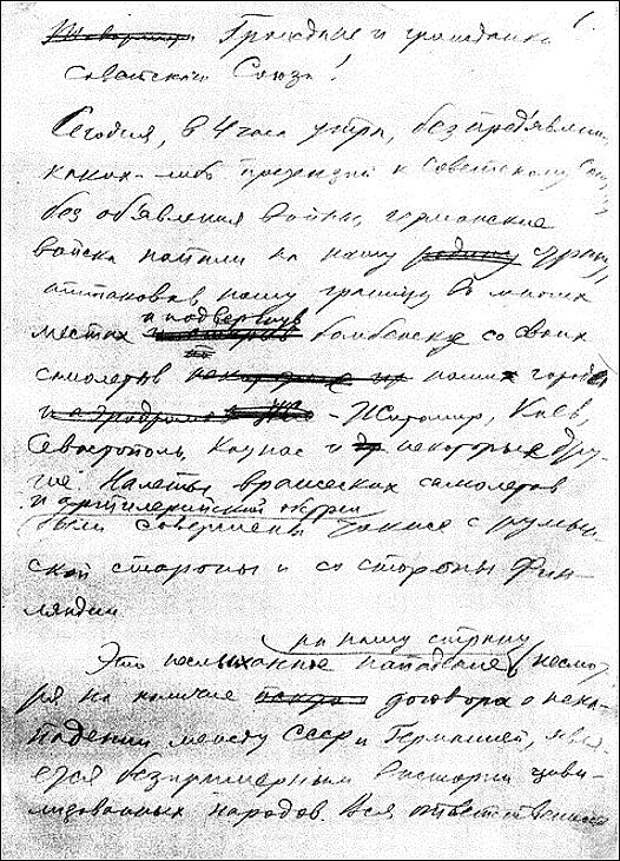 1.
Товарищи Граждане и гражданки
Советского Союза!
Сегодня, в 4 часа утра, без предъявления
каких-либо претензий к Советскому Союзу,
без объявления войны, германские
войска напали на нашу родину страну,
атаковав нашу границу во многих
и подвергнув
местах бомбежке со своих
самолетов некоторые из наши города
- Житомир, Киев,
Севастополь, Каунас и др некоторые дру-
гие. Налеты вражеских самолетов
и артиллерийский обстрел
были совершены также с румын-
ской стороны и со стороны Фин-
ляндии
на нашу страну
Это неслыханное нападение, несмот-
ря на наличие договора о нена-
падении между СССР и Германией, явля-
ется беспримерным в истории циви-
лизованных народов. Вся ответственность